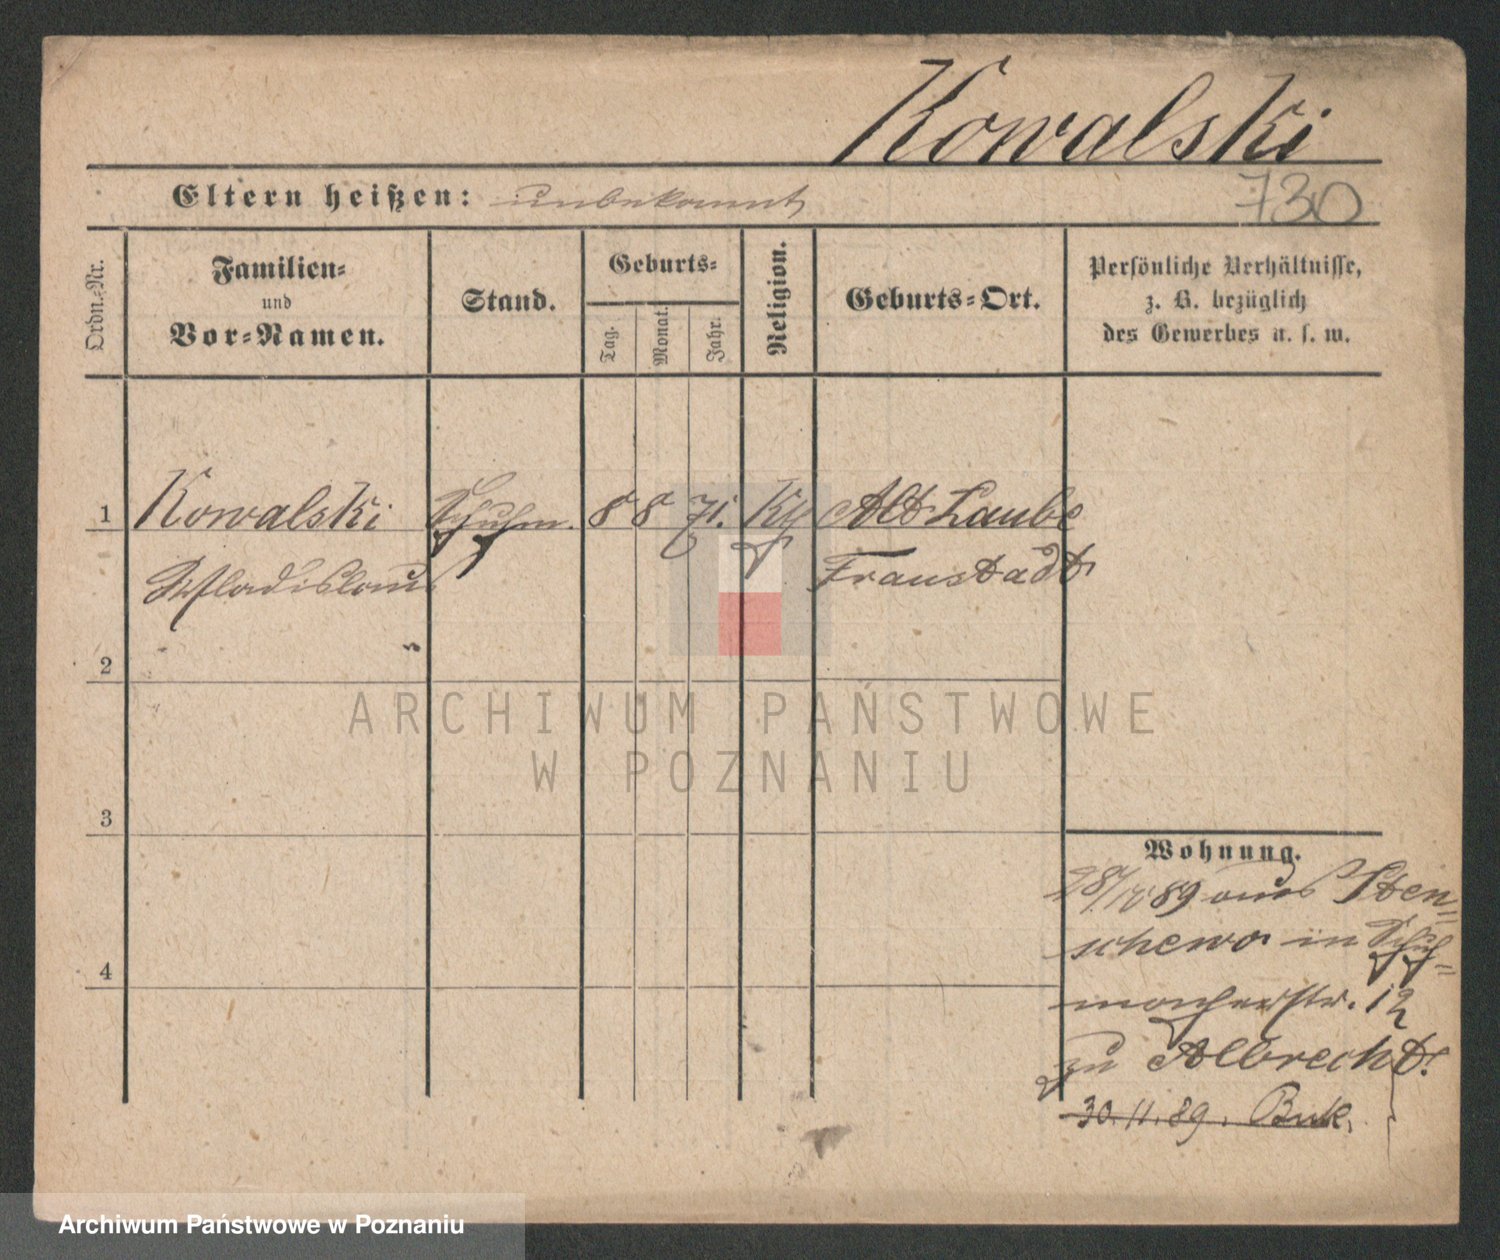 Kowalski
Eltern heißen: unbekannt
730
Ordn.-Nr.
Familien-
und
Vor-Namen.
Stand.
Geburts-
Tag.
Monat.
Jahr.
Religion.
Geburts-Ort.
Persönliche Verhältnisse,
z. B. bezüglich
des Gewerbes u. s. w.
1 Kowalski Schuhm. 8 8 71. Alt Laube
Wladislaus Fraustadt
2
ARCHIWUM PAŃSTWOWE
W POZNANIU
3
Wohnung.
89 aus Sten-
schewo in Schuh-
macherstr. 12
4
zu Albrecht.
30.11.89. Buk.
Archiwum Państwowe w Poznaniu